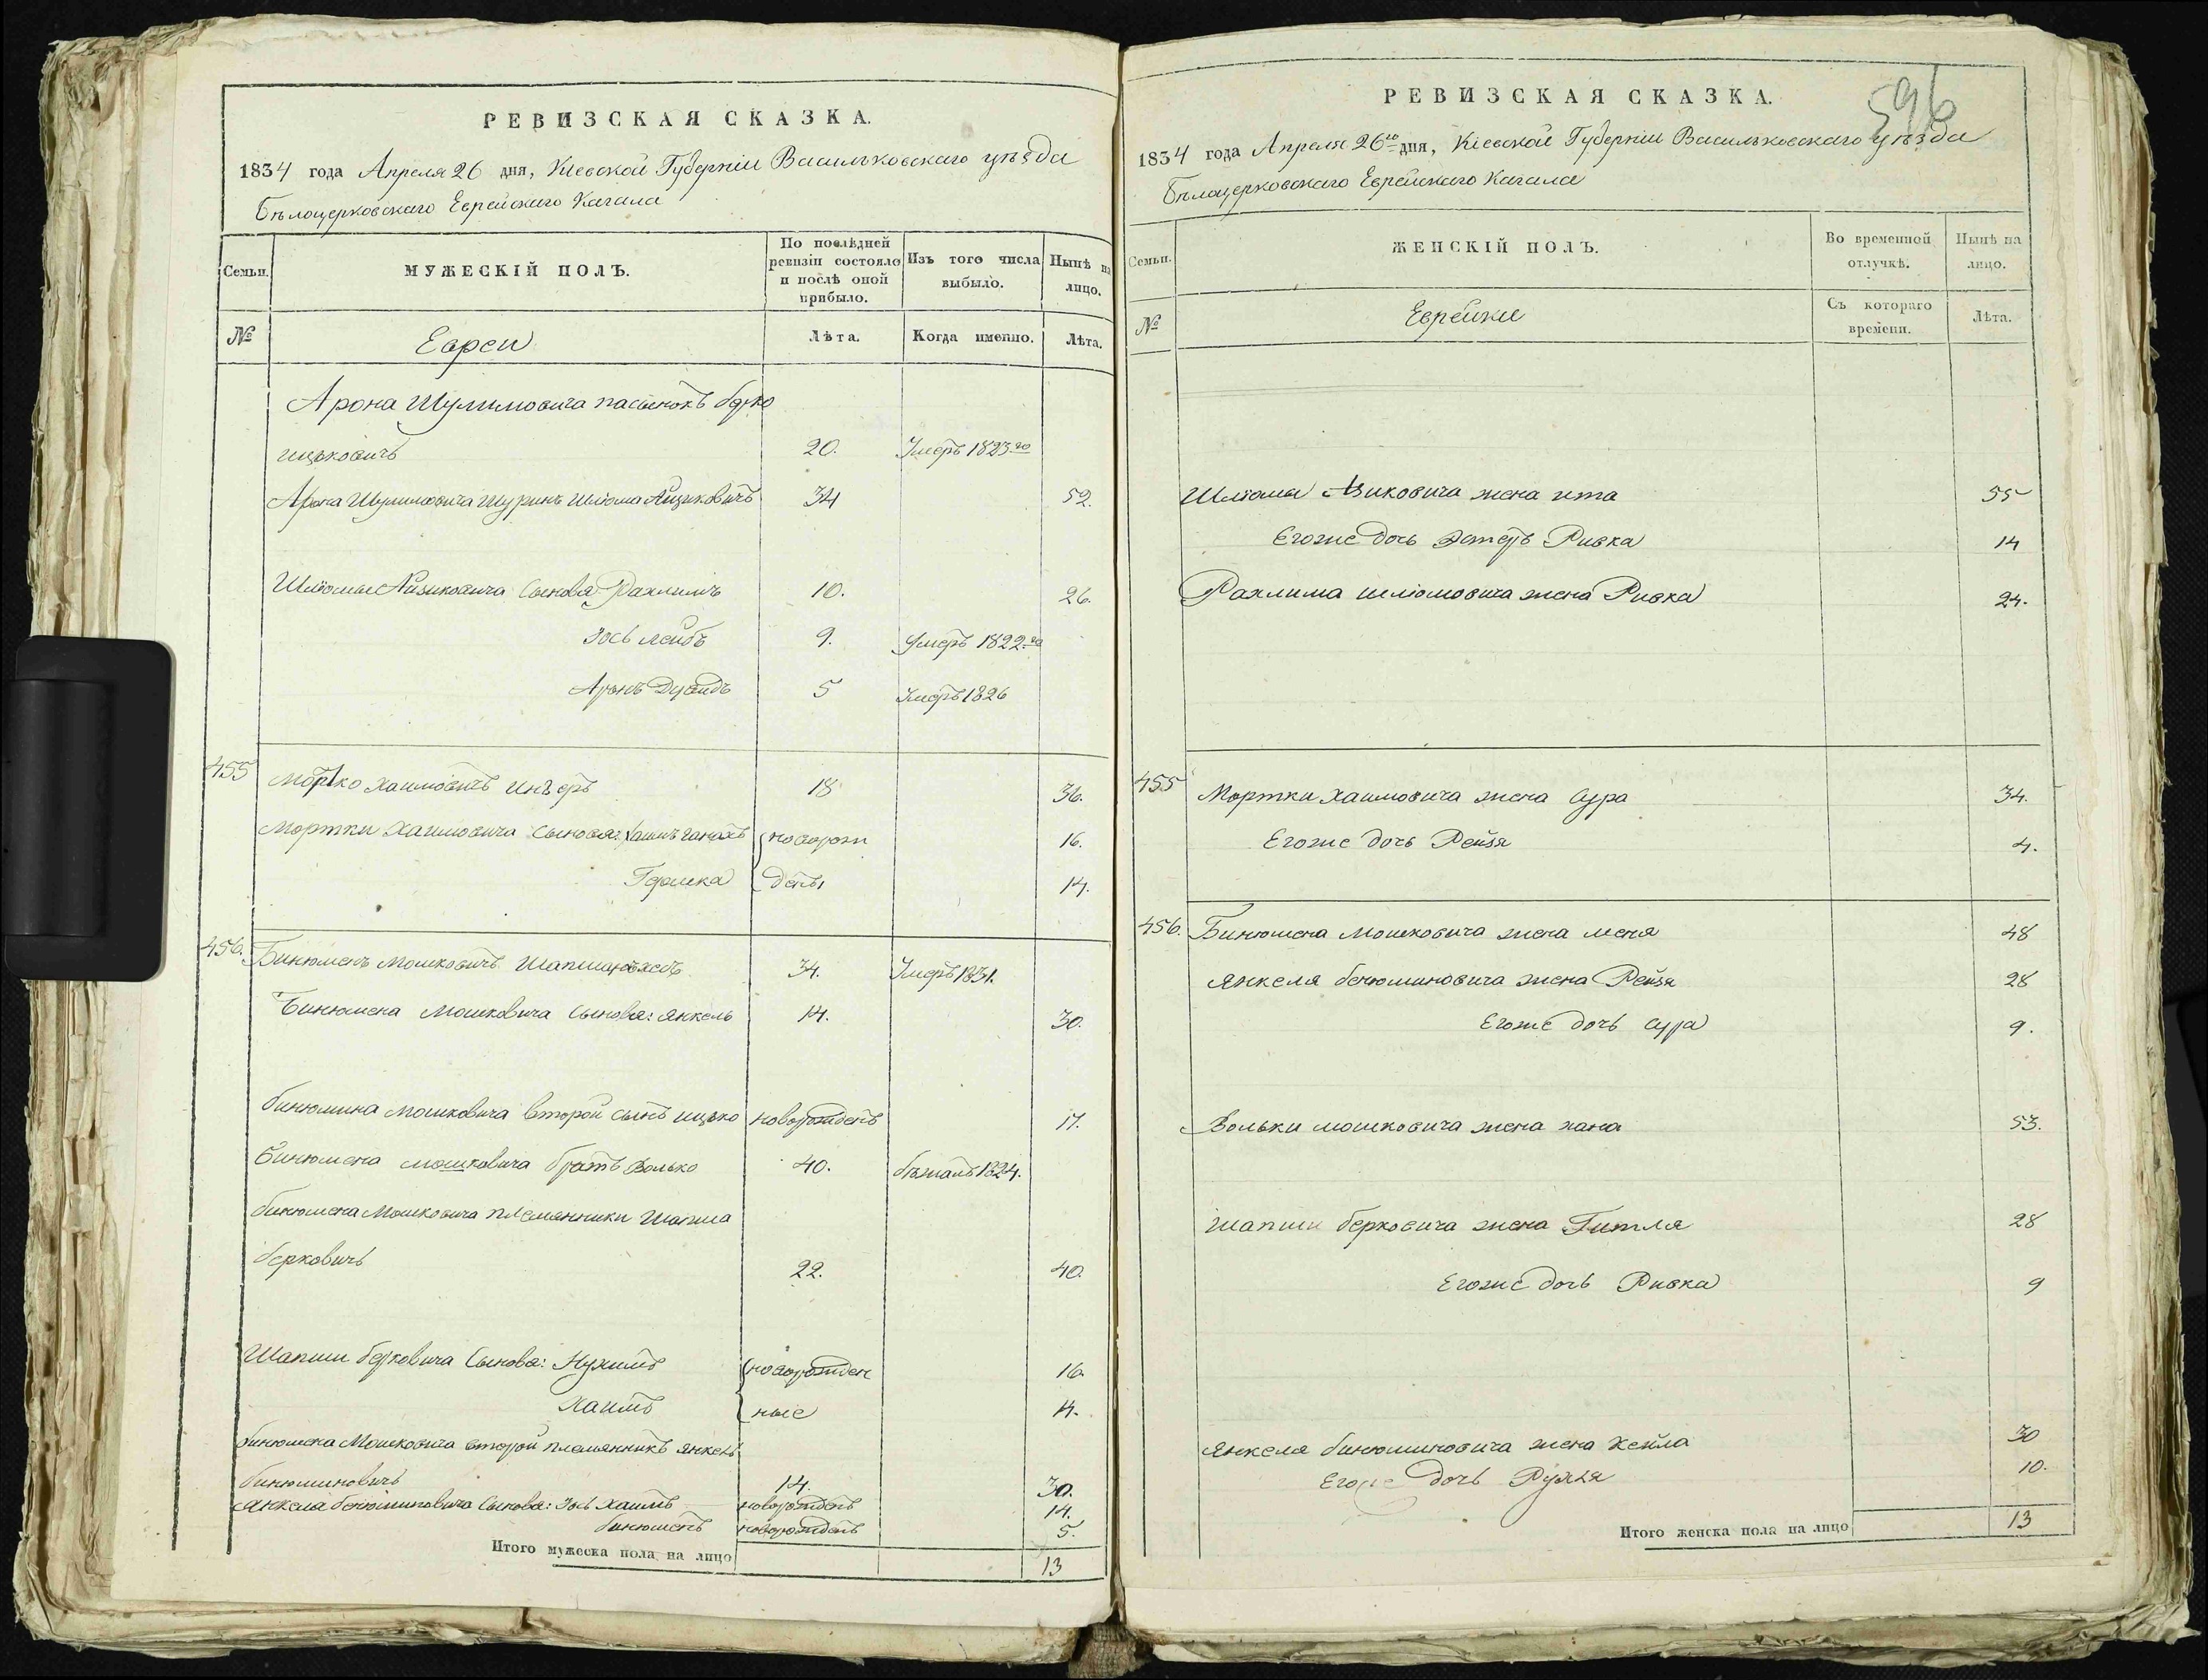 РЕВИЗСКАЯ СКАЗКА.
1834 года Апреля 26 дня, Кіевской Губерніи Васильковскаго уѣзда
Бѣлоцерковскаго Еврейскаго Кагала
Семьи.
МУЖЕСКІЙ ПОЛЪ.
По послѣдней ревизіи состояло и послѣ оной прибыло.
Изъ того числа выбыло.
Нынѣ на лицо.
№
Евреи
Лѣта.
Когда именно.
Лѣта.
Арона Шулимовича пасынокъ берко
ицьковичъ 20. Умеръ 1823го
Арона Шулимовича Шуринъ Шліома Айзиковичъ 34 52.
Шліомы Айзиковича Сыновя Рахлимъ 10. 26.
Іось лейбъ 9. Умеръ 1822го
Аронъ Дувидъ 5 Умеръ 1826
455 Мортко Хаимовичъ 18 36.
Мортки Хаимовича Сыновя: Хаимъ новорож 16.
Гершка дены 14.
456. Бинюменъ Мошковичъ 34. Умеръ 1831.
Бинюмена Мошковича Сыновя: Янкель 14. 30.
бинюмина Мошковича второй сынъ ицько новорожденъ 17.
Бинюмена мошковича братъ Волько 40. бѣжалъ 1824.
бинюмена Мошковича племянники Шапша
берковичъ 22. 40.
Шапши берковича Сыновя: Нухимъ новорожден 16.
Хаимъ ные 14.
бинюмена Мошковича второй племянникъ янкель
бинюминовичъ 14. 30.
Янкела бенюминовича Сыновя: Іось Хаимъ новорожденъ 14.
бинюменъ новорожденъ 5.
Итого мужеска пола на лицо 13
596
РЕВИЗСКАЯ СКАЗКА.
1834 года Апреля 26го дня, Кіевской Губерніи Васильковскаго уѣзда
Бѣлоцерковскаго Еврейскаго Кагала
Семьи.
ЖЕНСКІЙ ПОЛЪ.
Во временной отлучкѣ.
Нынѣ на лицо.
№
Еврейки
Съ котораго времени.
Лѣта.
Шліомы Азиковича жена ита 55
Егоже дочь Эстеръ Ривка 14
Рахлима шліомовича жена Ривка 24.
455 Мортки Хаимовича жена Сура 34.
Егоже дочь Рейзя 4.
456. Бинюмена Мошковича жена меня 48
Янкеля бенюминовича жена Рейзя 28
Егоже дочь Сура 9.
Вольки мошковича жена хана 53.
Шапши берковича жена Гитля 28
Егоже дочь Ривка 9
Янкела бинюминовича жена Хейла 30
Егоже дочь Рухля 10.
Итого женска пола на лицо 13